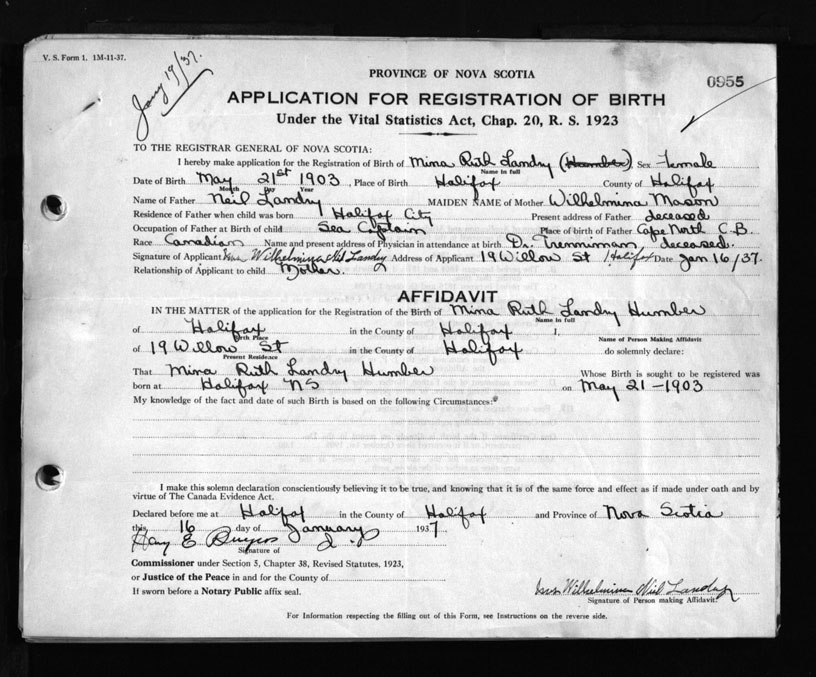 V. S. Form 1. 1M-11-37.
Jany 19/37.
0955
PROVINCE OF NOVA SCOTIA
APPLICATION FOR REGISTRATION OF BIRTH
Under the Vital Statistics Act, Chap. 20, R. S. 1923
TO THE REGISTRAR GENERAL OF NOVA SCOTIA:
I hereby make application for the Registration of Birth of Mina Ruth Landry (Humber) Sex Female
Name in full
Date of Birth May 21st 1903, Place of Birth Halifax County of Halifax
Month Day Year
Name of Father Neil Landry MAIDEN NAME of Mother Wilhelmina Mason
Residence of Father when child was born Halifax City Present address of Father deceased
Occupation of Father at Birth of child Sea Captain Place of birth of Father Cape North C.B.
Race Canadian Name and present address of Physician in attendance at birth Dr. deceased.
Signature of Applicant Wilhelmina Landry Address of Applicant 19 Willow St Halifax Date Jan 16/37.
Relationship of Applicant to child Mother.
AFFIDAVIT
IN THE MATTER of the application for the Registration of the Birth of Mina Ruth Landry Humber
Name in full
of Halifax in the County of Halifax I,
Birth Place Name of Person Making Affidavit
of 19 Willow St in the County of Halifax do solemnly declare:
Present Residence
That Mina Ruth Landry Humber Whose Birth is sought to be registered was
born at Halifax NS on May 21-1903
My knowledge of the fact and date of such Birth is based on the following Circumstances:
I make this solemn declaration conscientiously believing it to be true, and knowing that it is of the same force and effect as if made under oath and by
virtue of The Canada Evidence Act.
Declared before me at Halifax in the County of Halifax and Province of Nova Scotia
this 16 day of January 1937
Signature of
Commissioner under Section 5, Chapter 38, Revised Statutes, 1923,
or Justice of the Peace in and for the County of
If sworn before a Notary Public affix seal.
Wilhelmina Niel Landry
Signature of Person making Affidavit.
For Information respecting the filling out of this Form, see Instructions on the reverse side.